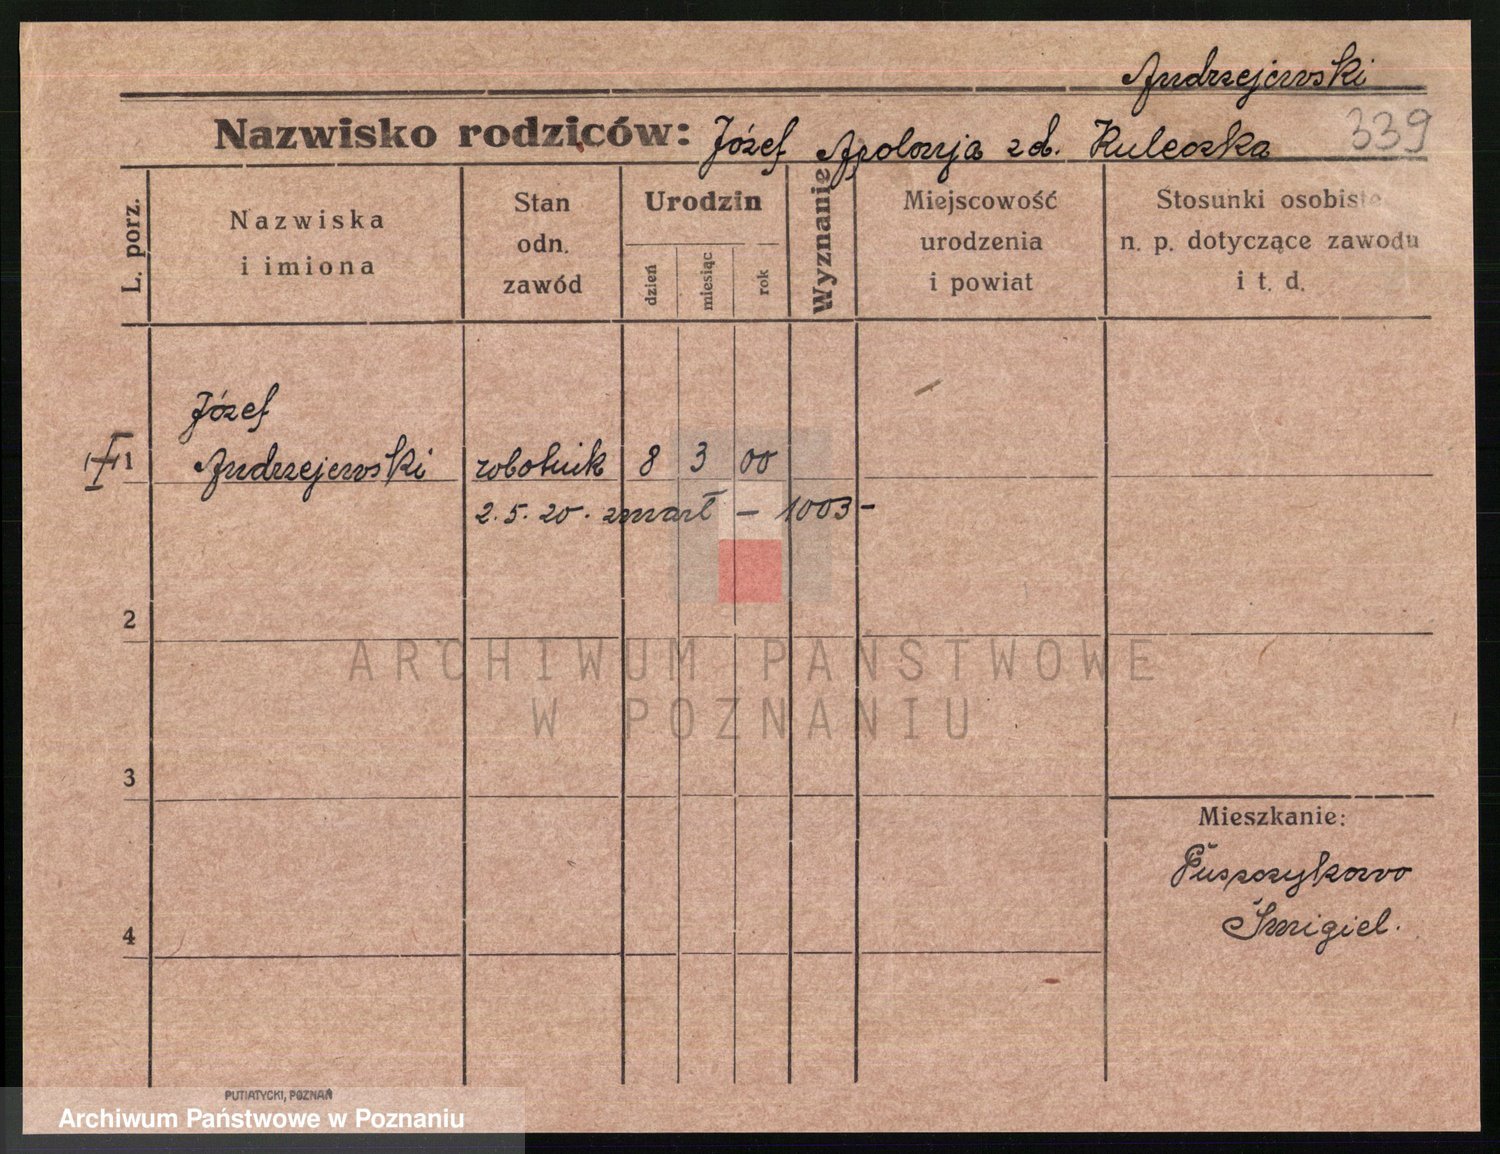 Andrzejewski
Nazwisko rodziców: Józef Apolonja zd. Kuleczka 339
L. porz.
Nazwiska
i imiona
Stan
odn.
zawód
Urodzin
dzień
miesiąc
rok
Wyznanie
Miejscowość
urodzenia
i powiat
Stosunki osobiste
n. p. dotyczące zawodu
i t. d.
Józef
1 Andrzejewski robotnik 8 3 00
2.5.20. zmarł – 1003 –
2
3
4
Mieszkanie:
Puszczykowo
Śmigiel.
ARCHIWUM PAŃSTWOWE
W POZNANIU
PUTIATYCKI, POZNAŃ
Archiwum Państwowe w Poznaniu